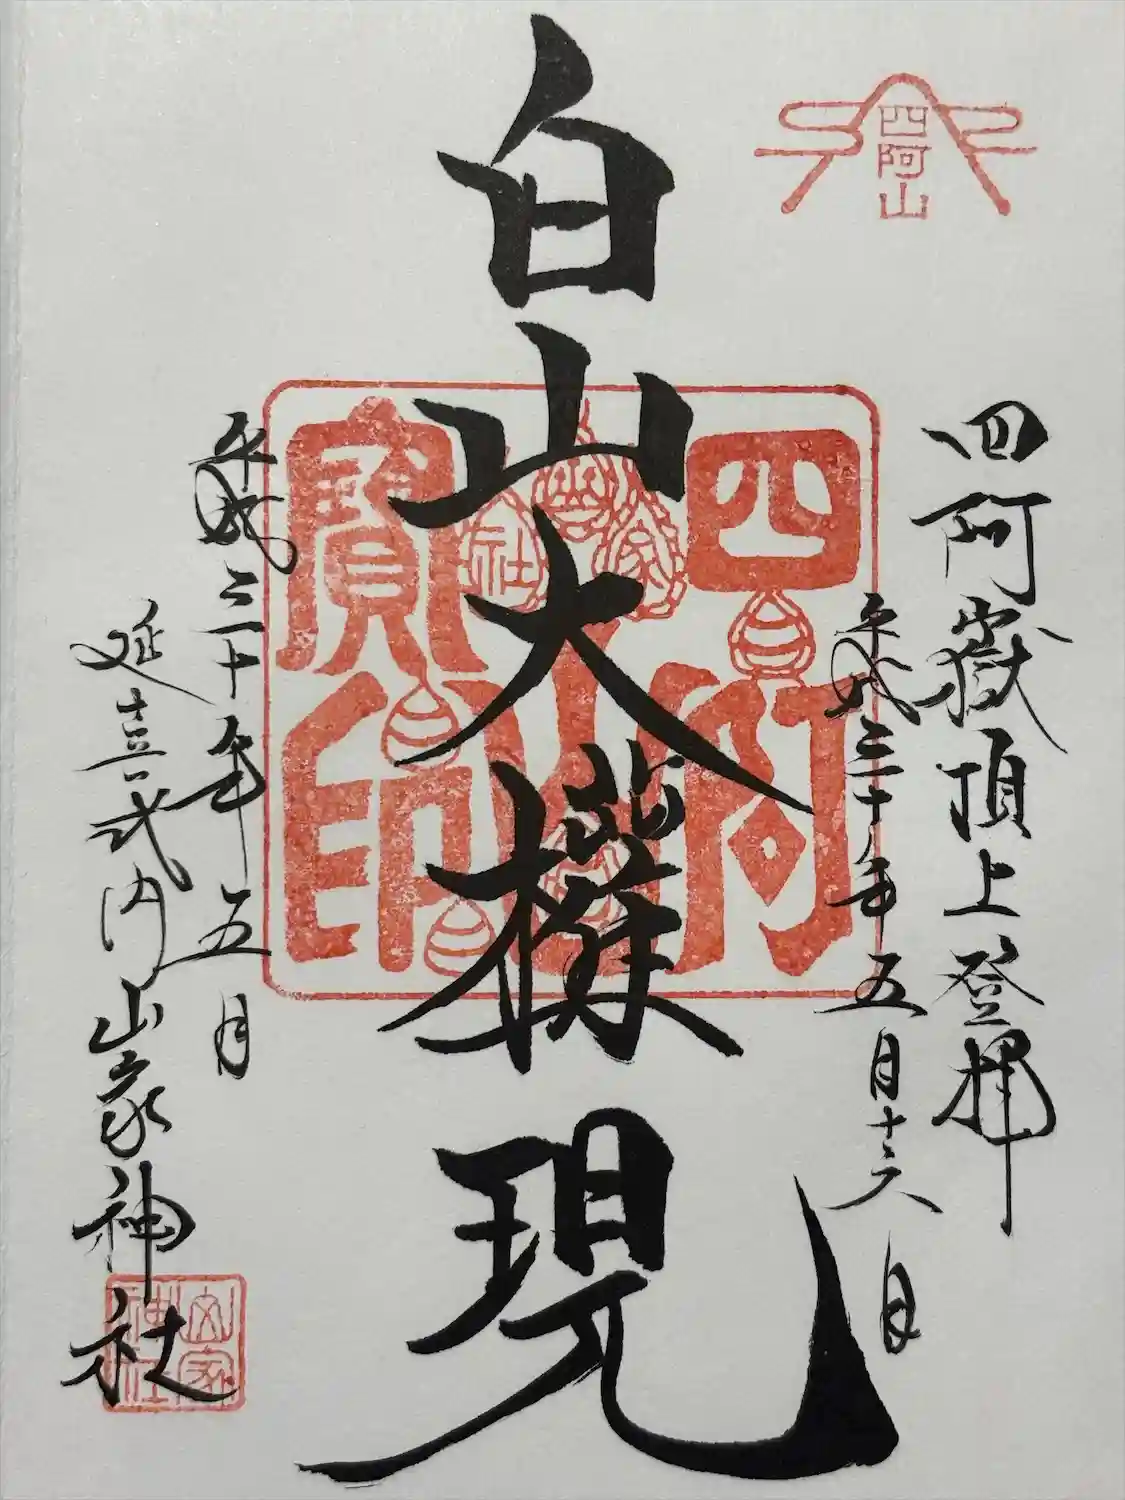 四阿山
四阿嶽頂上登拝
平成三十年五月十六日
白山大権現
四阿山
寳印
山家社
平成三十年五月
延喜式内山家神社
山家神社